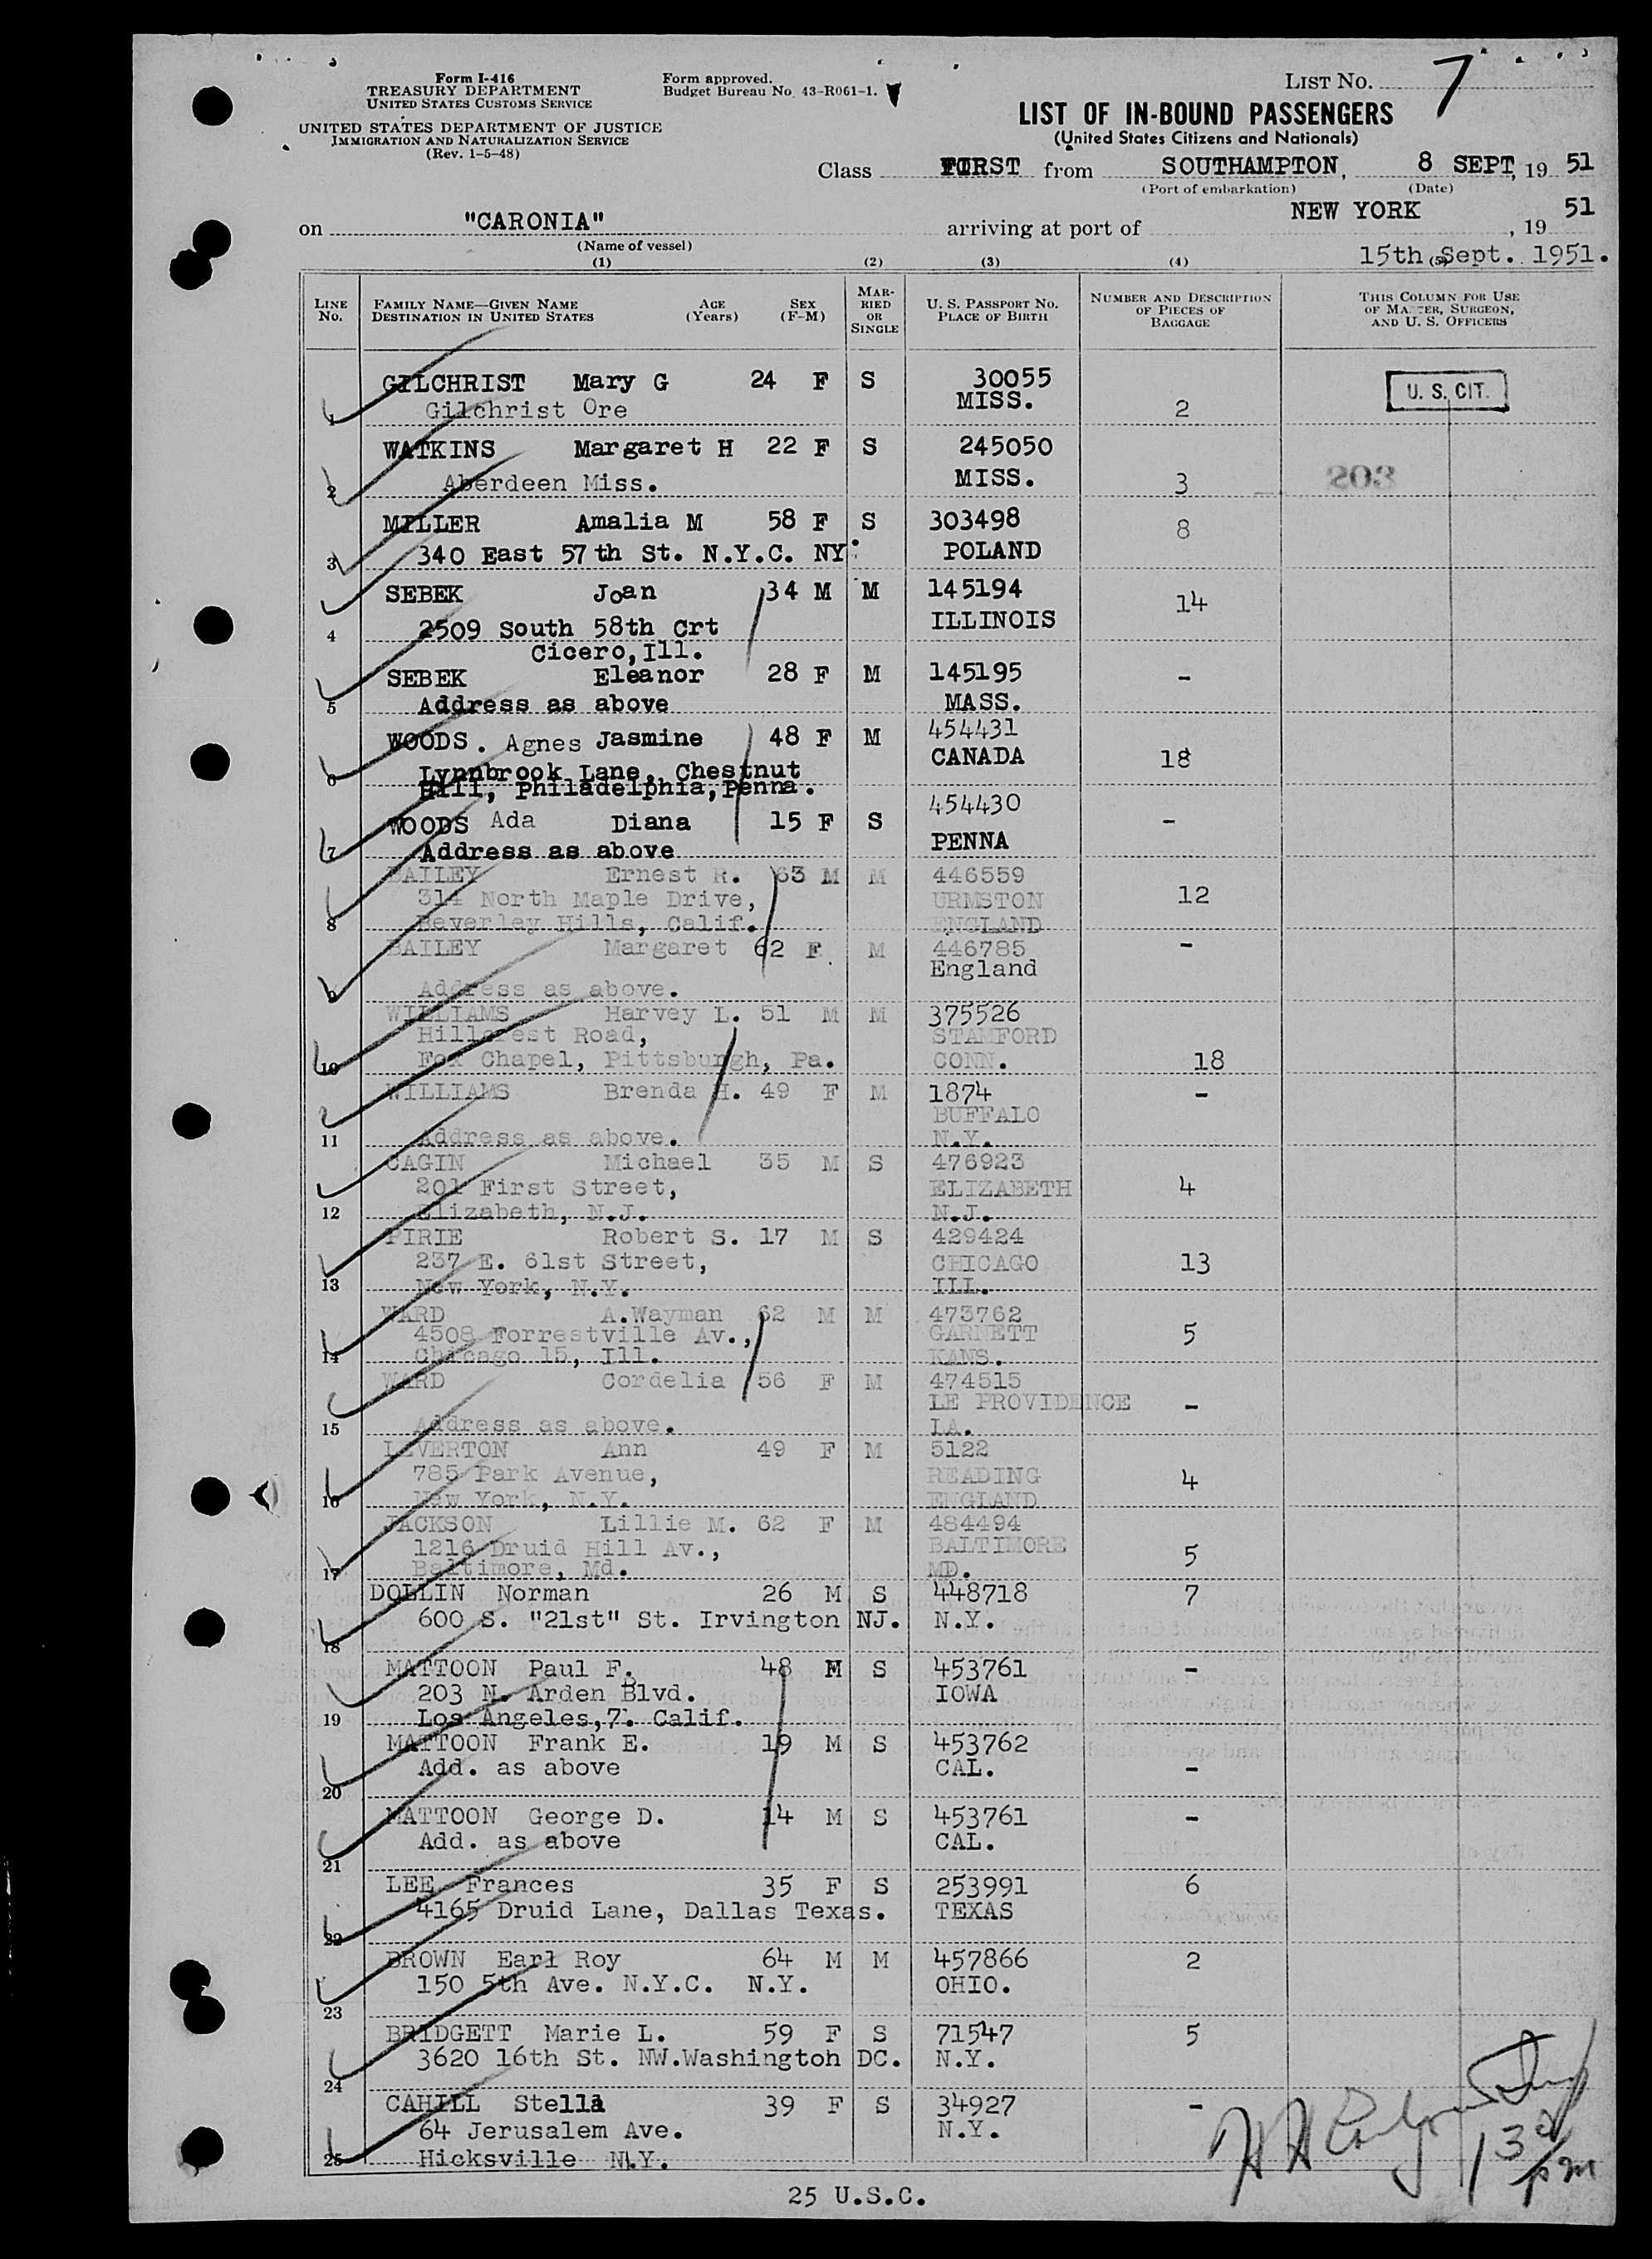 Form I-416
TREASURY DEPARTMENT
UNITED STATES CUSTOMS SERVICE
UNITED STATES DEPARTMENT OF JUSTICE
IMMIGRATION AND NATURALIZATION SERVICE
(Rev. 1-5-48)
Form approved.
Budget Bureau No. 43-R061-1.
LIST NO. 7
LIST OF IN-BOUND PASSENGERS
(United States Citizens and Nationals)
Class FIRST from SOUTHAMPTON, 8 SEPT, 19 51
(Port of embarkation) (Date)
on "CARONIA" arriving at port of NEW YORK, 19 51
(Name of vessel)
15th Sept. 1951.
(1) (2) (3) (4) (5)
LINE No. FAMILY NAME—GIVEN NAME DESTINATION IN UNITED STATES AGE (Years) SEX (F-M) MARRIED OR SINGLE U. S. PASSPORT NO. PLACE OF BIRTH NUMBER AND DESCRIPTION OF PIECES OF BAGGAGE THIS COLUMN FOR USE OF MASTER, SURGEON, AND U. S. OFFICERS
GILCHRIST Mary G 24 F S 30055
MISS. U. S. CIT.
1 Gilchrist Ore 2
WATKINS Margaret H 22 F S 245050
2 Aberdeen Miss. MISS. 3 203
MILLER Amalia M 58 F S 303498 8
3 340 East 57th St. N.Y.C. NY. POLAND
SEBEK Joan 34 M M 145194 14
4 2509 South 58th Crt ILLINOIS
Cicero, Ill.
SEBEK Eleanor 28 F M 145195 -
5 Address as above MASS.
WOODS. Agnes Jasmine 48 F M 454431
CANADA 18
6 Lynnbrook Lane, Chestnut
Hill, Philadelphia, Penna.
WOODS Ada Diana 15 F S 454430 -
7 Address as above PENNA
BAILEY Ernest R. 63 M M 446559
314 North Maple Drive, URMSTON 12
8 Beverley Hills, Calif. ENGLAND
BAILEY Margaret 62 F M 446785 -
England
9 Address as above.
WILLIAMS Harvey L. 51 M M 375526
Hillcrest Road, STAMFORD
10 Fox Chapel, Pittsburgh, Pa. CONN. 18
WILLIAMS Brenda H. 49 F M 1874 -
BUFFALO
11 Address as above. N.Y.
CAGIN Michael 35 M S 476923
201 First Street, ELIZABETH 4
12 Elizabeth, N.J. N.J.
PIRIE Robert S. 17 M S 429424
237 E. 61st Street, CHICAGO 13
13 New York, N.Y. ILL.
WARD A.Wayman 62 M M 473762
4508 Forrestville Av., GARNETT 5
14 Chicago 15, Ill. KANS.
WARD Cordelia 56 F M 474515
LE PROVIDENCE -
15 Address as above. LA.
LEVERTON Ann 49 F M 5122
785 Park Avenue, READING 4
16 New York, N.Y. ENGLAND
JACKSON Lillie M. 62 F M 484494
1216 Druid Hill Av., BALTIMORE 5
17 Baltimore, Md. MD.
DOLLIN Norman 26 M S 448718 7
600 S. "21st" St. Irvington NJ. N.Y.
18
MATTOON Paul F. 48 M S 453761 -
203 N. Arden Blvd. IOWA
19 Los Angeles,7. Calif.
MATTOON Frank E. 19 M S 453762
Add. as above CAL. -
20
MATTOON George D. 14 M S 453761 -
Add. as above CAL.
21
LEE Frances 35 F S 253991 6
4165 Druid Lane, Dallas Texas. TEXAS
22
BROWN Earl Roy 64 M M 457866 2
150 5th Ave. N.Y.C. N.Y. OHIO.
23
BRIDGETT Marie L. 59 F S 71547 5
3620 16th St. NW.Washington DC. N.Y.
24
CAHILL Stella 39 F S 34927 -
64 Jerusalem Ave. N.Y.
25 Hicksville N.Y.
25 U.S.C.